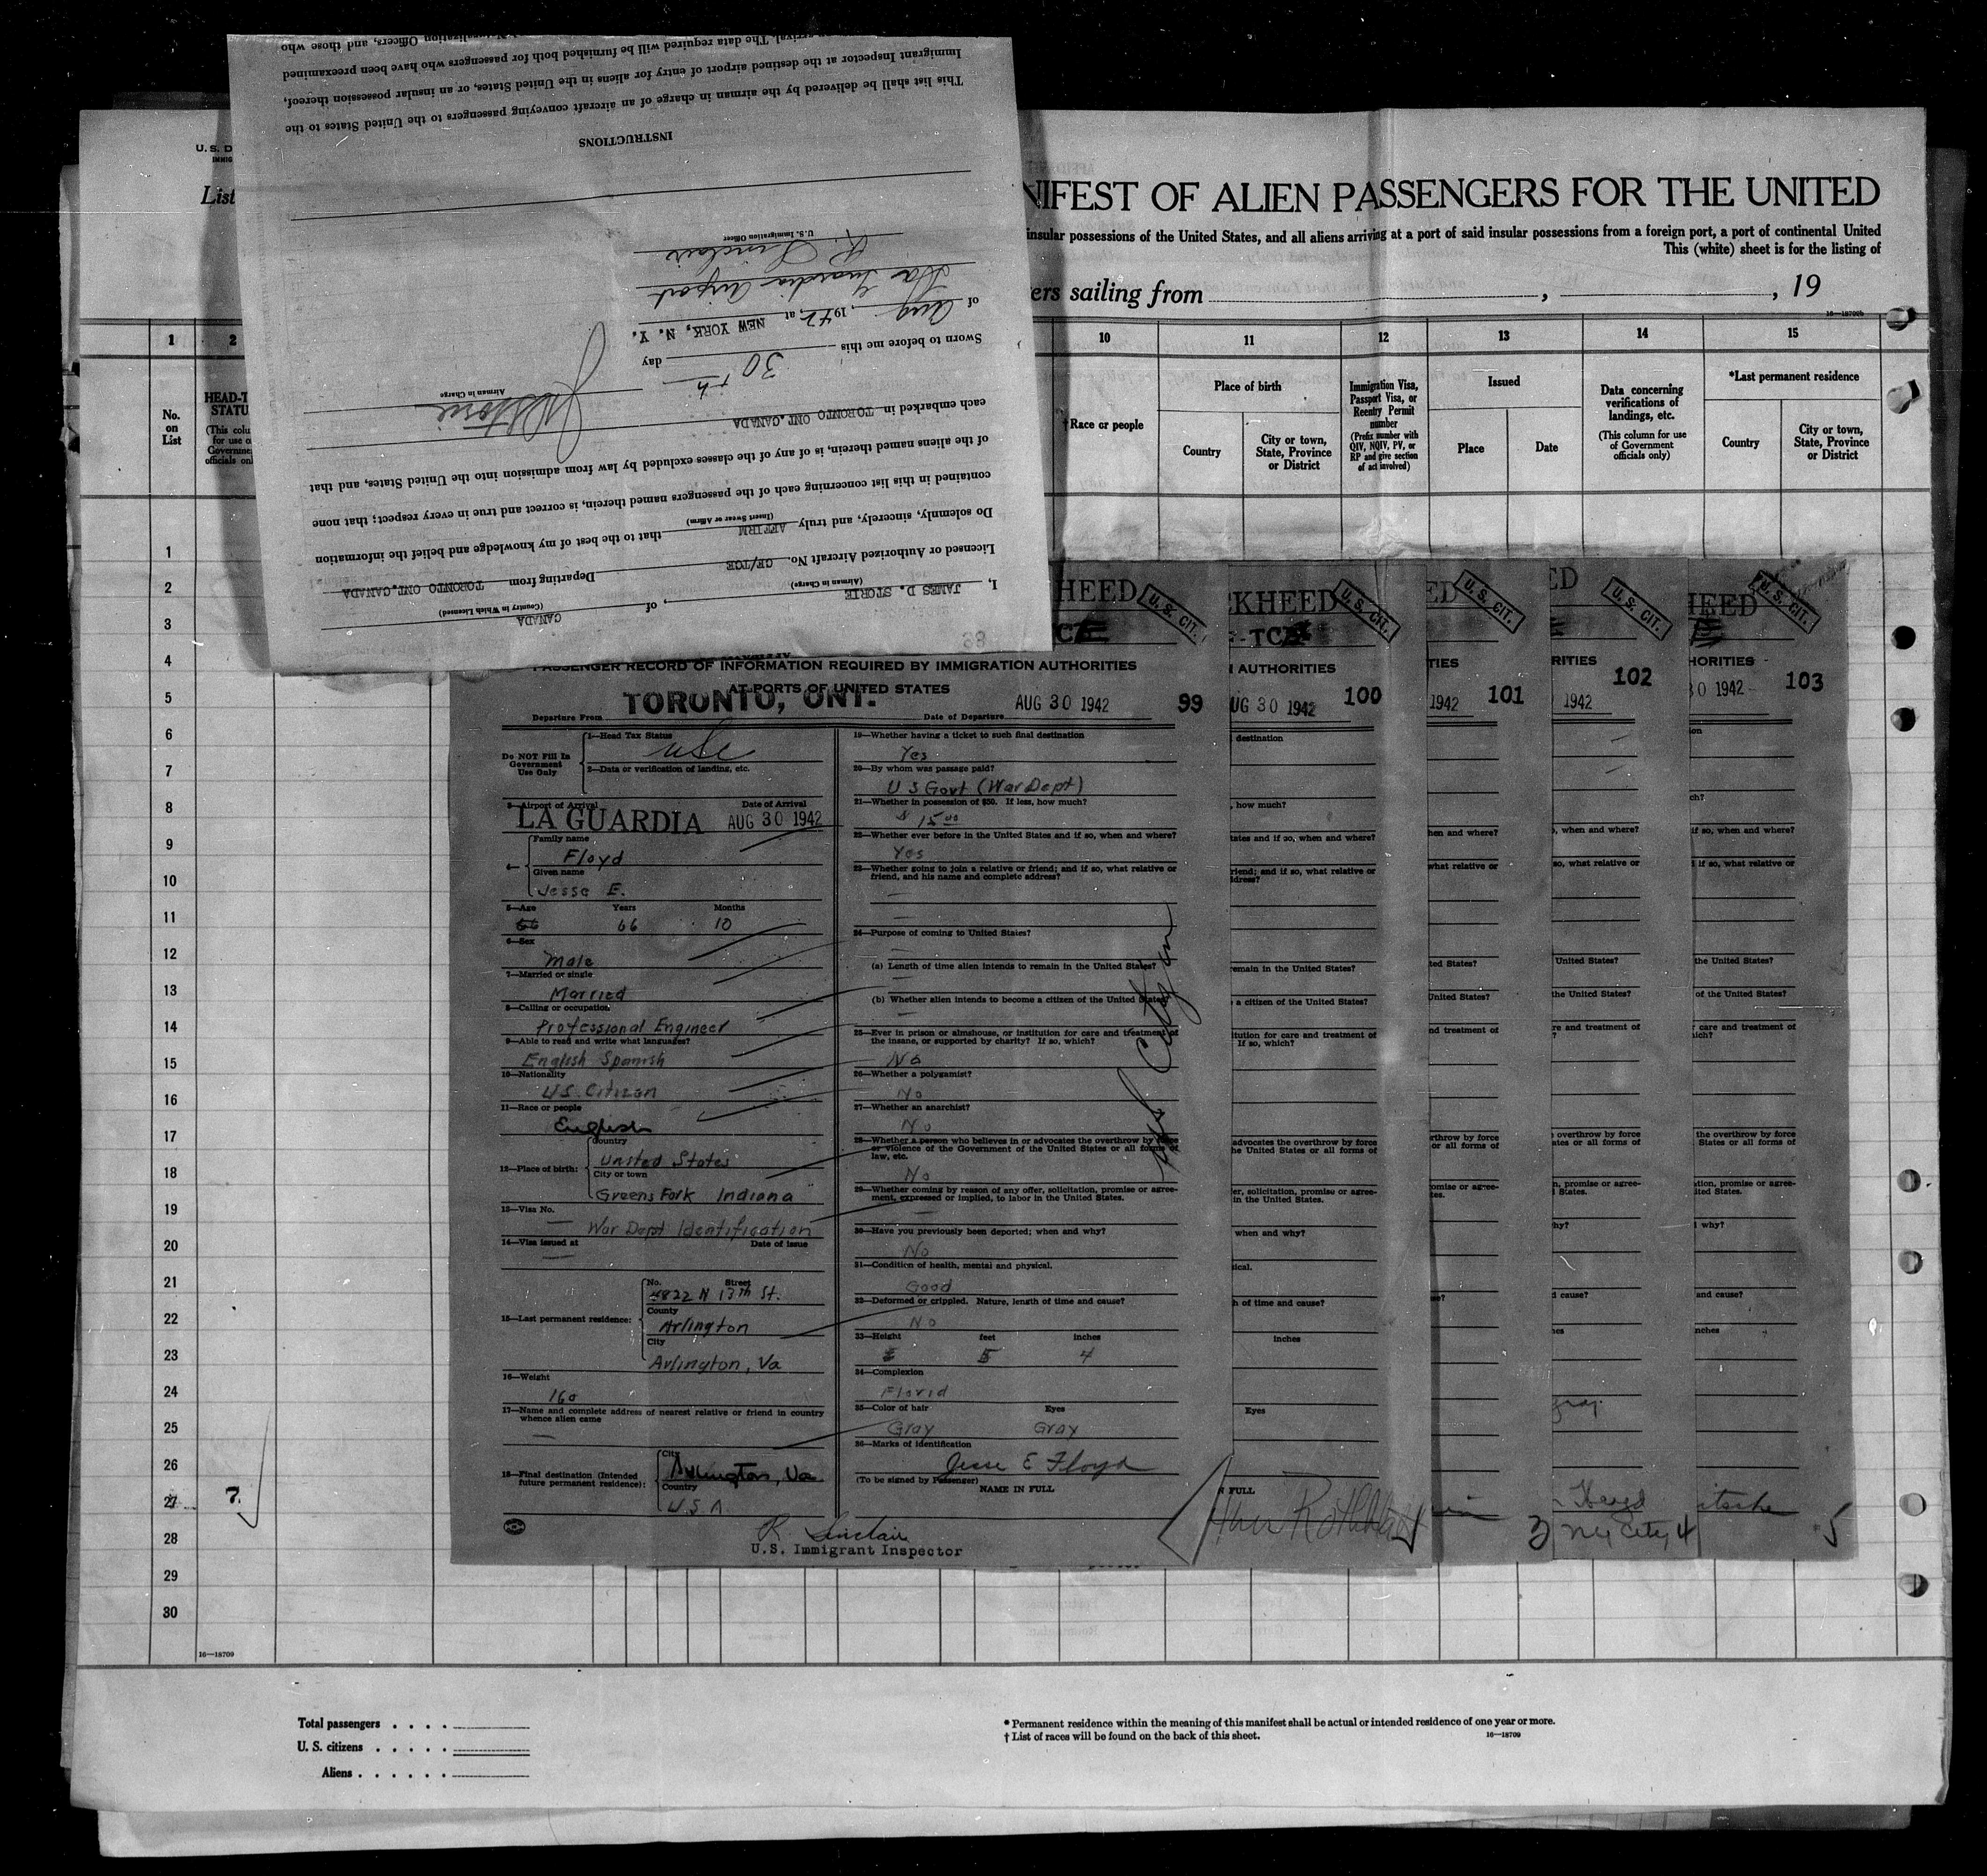 arrival. The data required will be furnished both for passengers who have been preexamined
Naturalization Officers, and those who
Immigrant Inspector at the destined airport of entry for aliens in the United States, or an insular possession thereof,
This list shall be delivered by the airman in charge of an aircraft conveying passengers to the United States to the
INSTRUCTIONS
U. S. Immigration Officer
R. Sinclair
La Guardia Airport
of Aug, 1942, at NEW YORK, N. Y.
Sworn to before me this 30th day
Airman in Charge
each embarked in TORONTO ONT.CANADA
of the aliens named therein, is of any of the classes excluded by law from admission into the United States, and that
contained in this list concerning each of the passengers named therein, is correct and true in every respect; that none
(Insert Swear or Affirm)
Do solemnly, sincerely, and truly AFFIRM that to the best of my knowledge and belief the information
Licensed or Authorized Aircraft No. CF/TCE Departing from TORONTO ONT.CANADA
(Airman in Charge) (Country in Which Licensed)
I, JAMES D. STORIE, of CANADA
U. S. D
IMMIG
List
NIFEST OF ALIEN PASSENGERS FOR THE UNITED
insular possessions of the United States, and all aliens arriving at a port of said insular possessions from a foreign port, a port of continental United
This (white) sheet is for the listing of
ers sailing from , , 19
16—18709b
1 2 10 11 12 13 14 15
No. on List
HEAD-T
STATU
(This colu
for use o
Governme
officials onl
† Race or people
Place of birth
Country
City or town, State, Province or District
Immigration Visa, Passport Visa, or Reentry Permit number
(Prefix number with QIV, NQIV, PV, or RP and give section of act involved)
Issued
Place
Date
Data concerning verifications of landings, etc.
(This column for use of Government officials only)
*Last permanent residence
Country
City or town, State, Province or District
1
2
3
4
5
6
7
8
9
10
11
12
13
14
15
16
17
18
19
20
21
22
23
24
25
26
27 7
28
29
30
16—18709
HEED U. S. CIT.
PASSENGER RECORD OF INFORMATION REQUIRED BY IMMIGRATION AUTHORITIES
AT PORTS OF UNITED STATES
TORONTO, ONT. AUG 30 1942 99
Departure From Date of Departure
Do NOT Fill In
Government
Use Only
1—Head Tax Status
USC
2—Data or verification of landing, etc.
3—Airport of Arrival Date of Arrival
LA GUARDIA AUG 30 1942
4—
Family name
Floyd
Given name
Jesse E.
5—Age Years Months
66 66 10
6—Sex
Male
7—Married or single
Married
8—Calling or occupation
Professional Engineer
9—Able to read and write what languages?
English Spanish
10—Nationality
U.S. Citizen
11—Race or people
English
12—Place of birth:
Country
United States
City or town
Greens Fork Indiana
13—Visa No.
— War Dept Identification
14—Visa issued at Date of issue
—
15—Last permanent residence:
No. Street
4822 N 13th St.
County
Arlington
City
Arlington, Va
16—Weight
160
17—Name and complete address of nearest relative or friend in country
whence alien came
—
18—Final destination (Intended
future permanent residence):
City
Arlington, Va
Country
U.S.A.
19—Whether having a ticket to such final destination
Yes
20—By whom was passage paid?
U S Govt (War Dept)
21—Whether in possession of $50. If less, how much?
$ 15.00
22—Whether ever before in the United States and if so, when and where?
Yes
23—Whether going to join a relative or friend; and if so, what relative or
friend, and his name and complete address?
—
—
24—Purpose of coming to United States?
—
(a) Length of time alien intends to remain in the United States?
—
(b) Whether alien intends to become a citizen of the United States
—
25—Ever in prison or almshouse, or institution for care and treatment of
the insane, or supported by charity? If so, which?
No
26—Whether a polygamist?
No
27—Whether an anarchist?
No
28—Whether a person who believes in or advocates the overthrow by force
or violence of the Government of the United States or all forms of
law, etc.
No
29—Whether coming by reason of any offer, solicitation, promise or agree-
ment, expressed or implied, to labor in the United States.
—
30—Have you previously been deported; when and why?
No
31—Condition of health, mental and physical.
Good
32—Deformed or crippled. Nature, length of time and cause?
No
33—Height feet inches
5 4
34—Complexion
Florid
35—Color of hair Eyes
Gray Gray
36—Marks of identification
Jesse E Floyd
(To be signed by Passenger)
NAME IN FULL
R. Sinclair
U.S. Immigrant Inspector
KHEED U. S. CIT.
-TC
AUTHORITIES
UG 30 1942 100
destination
, how much?
tates and if so, when and where?
riend; and if so, what relative or
ldress?
remain in the United States?
a citizen of the United States?
itution for care and treatment of
If so, which?
advocates the overthrow by force
he United States or all forms of
er, solicitation, promise or agree-
in the United States.
when and why?
sical.
h of time and cause?
inches
Eyes
FULL
ED U. S. CIT.
TIES
1942 101
hen and where?
what relative or
ted States?
United States?
nd treatment of
rthrow by force
or all forms of
omise or agree-
tes.
3
ED U. S. CIT.
RITIES
1942 102
, when and where?
so, what relative or
United States?
the United States?
re and treatment of
overthrow by force
ates or all forms of
n, promise or agree-
States.
hy?
d cause?
hes
gray
NY City 4
HEED U. S. CIT.
HORITIES
30 1942 103
ion
ch?
if so, when and where?
if so, what relative or
the United States?
of the United States?
care and treatment of
ich?
the overthrow by force
States or all forms of
ation, promise or agree-
ited States.
why?
and cause?
nches
5
Total passengers . . . .
U. S. citizens . . . . .
Aliens . . . . . .
* Permanent residence within the meaning of this manifest shall be actual or intended residence of one year or more.
† List of races will be found on the back of this sheet.
16—18709